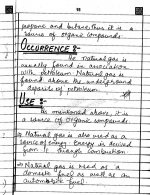 propane and butane, thus it is a
source of organic compounds.
OCCURRENCE :-
The natural gas is
usually found in association
with petroleum. Natural gas is
found above the underground
deposits of petroleum.
USE :-
As mentioned above, it is
a source of organic compounds
Natural gas is also used as a
source of energy. Energy is derived
from its combustion
Natural gas is used as
domestic fuel as well as an
automobile fuel